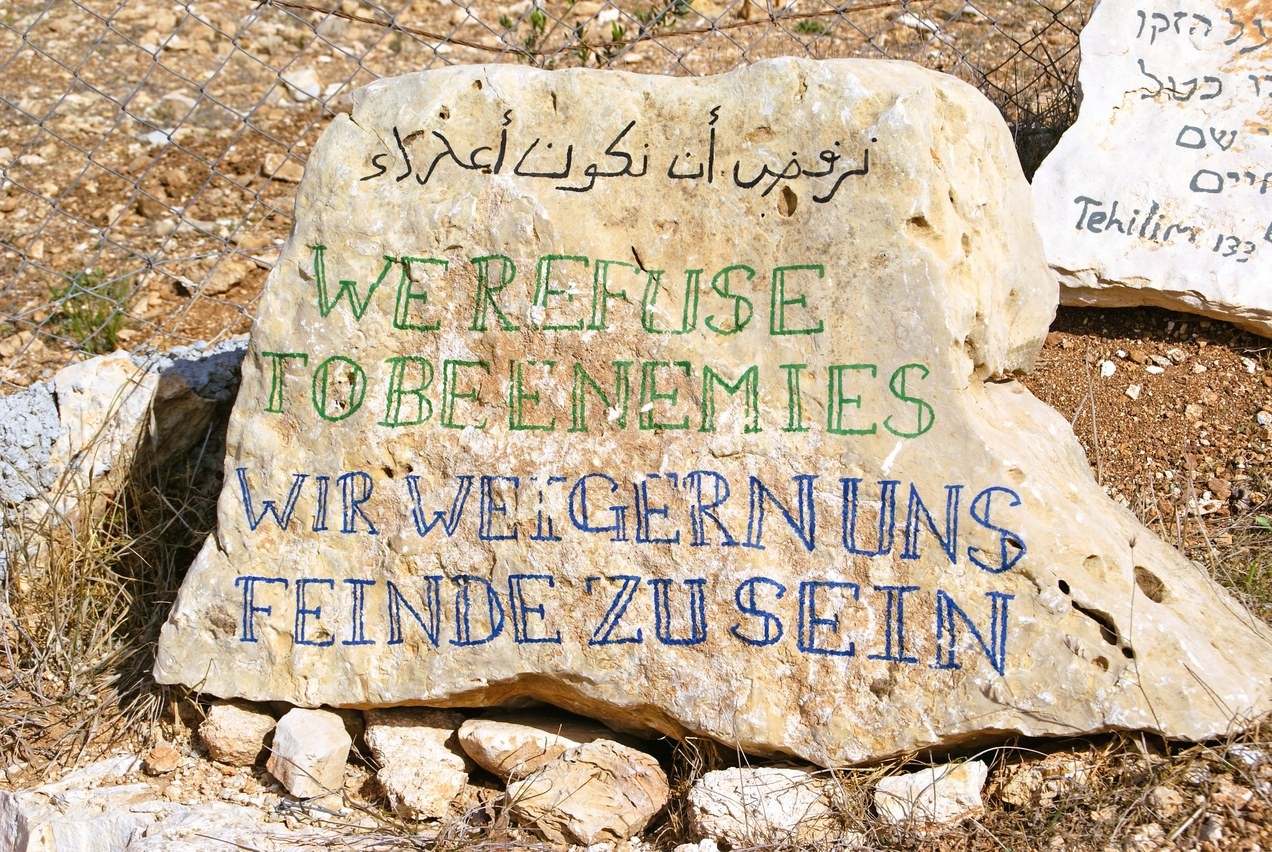 نرفض أن نكون أعداء
WE REFUSE
TO BE ENEMIES
WIR WEIGERN UNS
FEINDE ZU SEIN
הזקן
שם
Tehilim 133